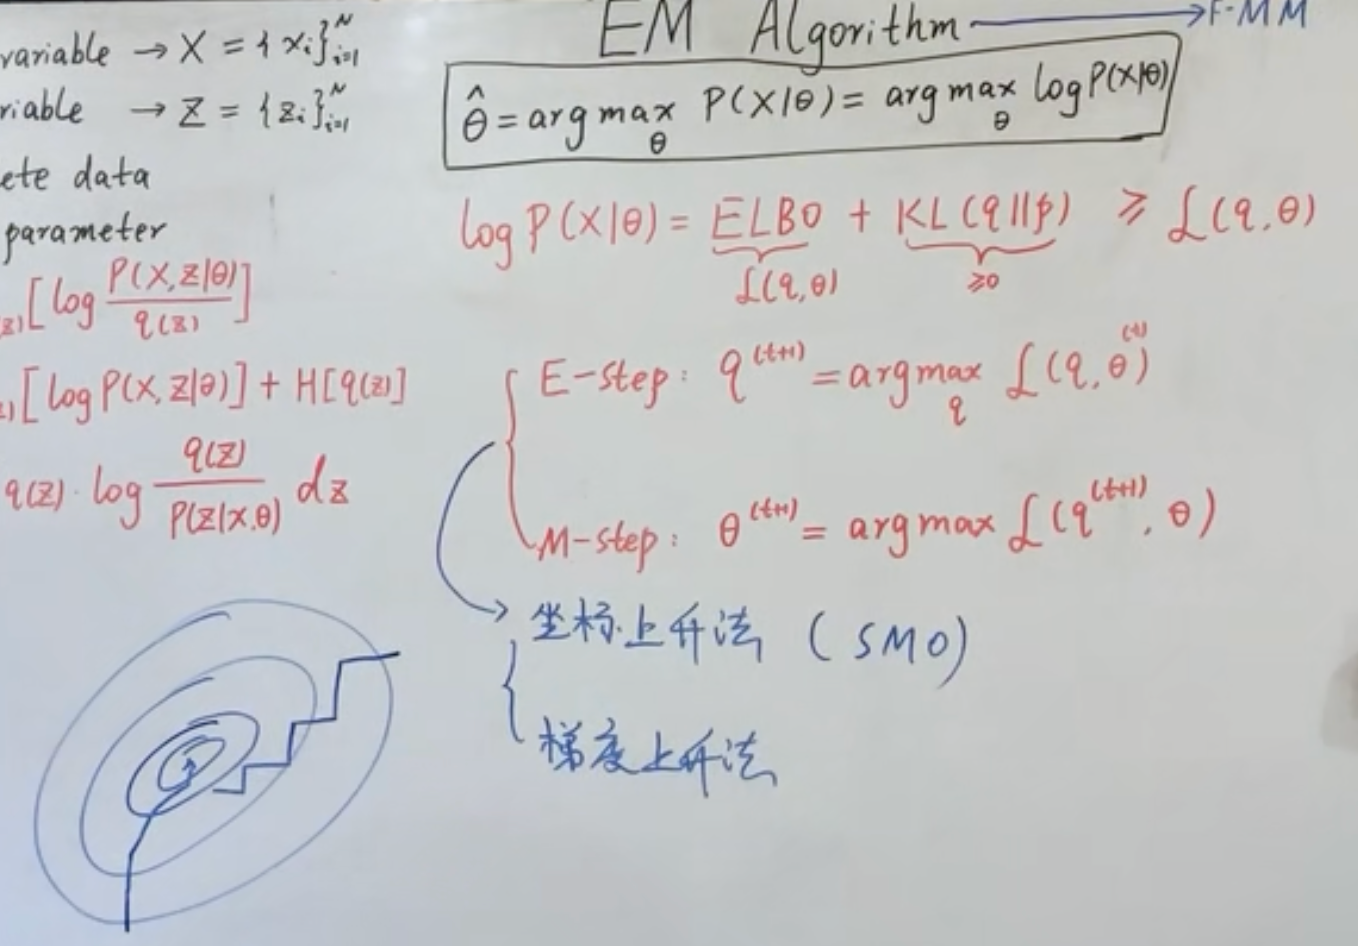 variable → X = {xᵢ}ᴺᵢ₌₁
riable → Z = {zᵢ}ᴺᵢ₌₁
ete data
parameter
[log P(X,Z|θ)/q(z)]
[log P(X,Z|θ)] + H[q(z)]
q(z)·log q(z)/P(z|x,θ) dz
EM Algorithm → F-MM
θ̂ = arg max_θ P(X|θ) = arg max_θ log P(X|θ)
log P(X|θ) = ELBO + KL(q||p) ≥ ℒ(q,θ)
ℒ(q,θ) ≥0
E-step: q⁽ᵗ⁺¹⁾ = arg max_q ℒ(q,θ⁽ᵗ⁾)
M-step: θ⁽ᵗ⁺¹⁾ = arg max ℒ(q⁽ᵗ⁺¹⁾, θ)
坐标上升法 (SMO)
梯度上升法